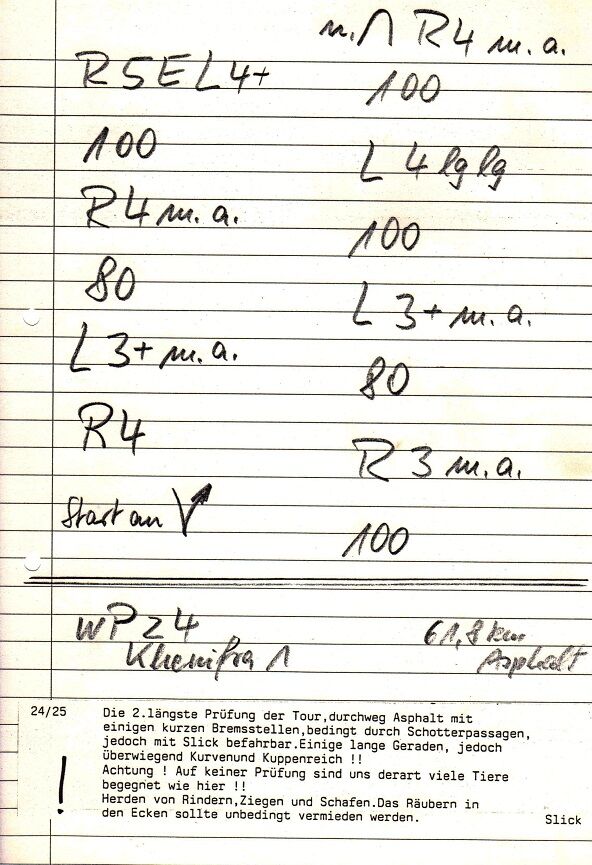 R5EL4+
100
R4 m.a.
80
L3+ m.a.
R4
Start an
∩ R4 m.a.
100
L 4 lg lg
100
L 3+ m.a.
80
R 3 m.a.
100
WP 24
Khenifra 1
61,8 km
Asphalt
24/25
!
Die 2.längste Prüfung der Tour,durchweg Asphalt mit
einigen kurzen Bremsstellen,bedingt durch Schotterpassagen,
jedoch mit Slick befahrbar.Einige lange Geraden, jedoch
überwiegend Kurvenund Kuppenreich !!
Achtung ! Auf keiner Prüfung sind uns derart viele Tiere
begegnet wie hier !!
Herden von Rindern,Ziegen und Schafen.Das Räubern in
den Ecken sollte unbedingt vermieden werden.
Slick